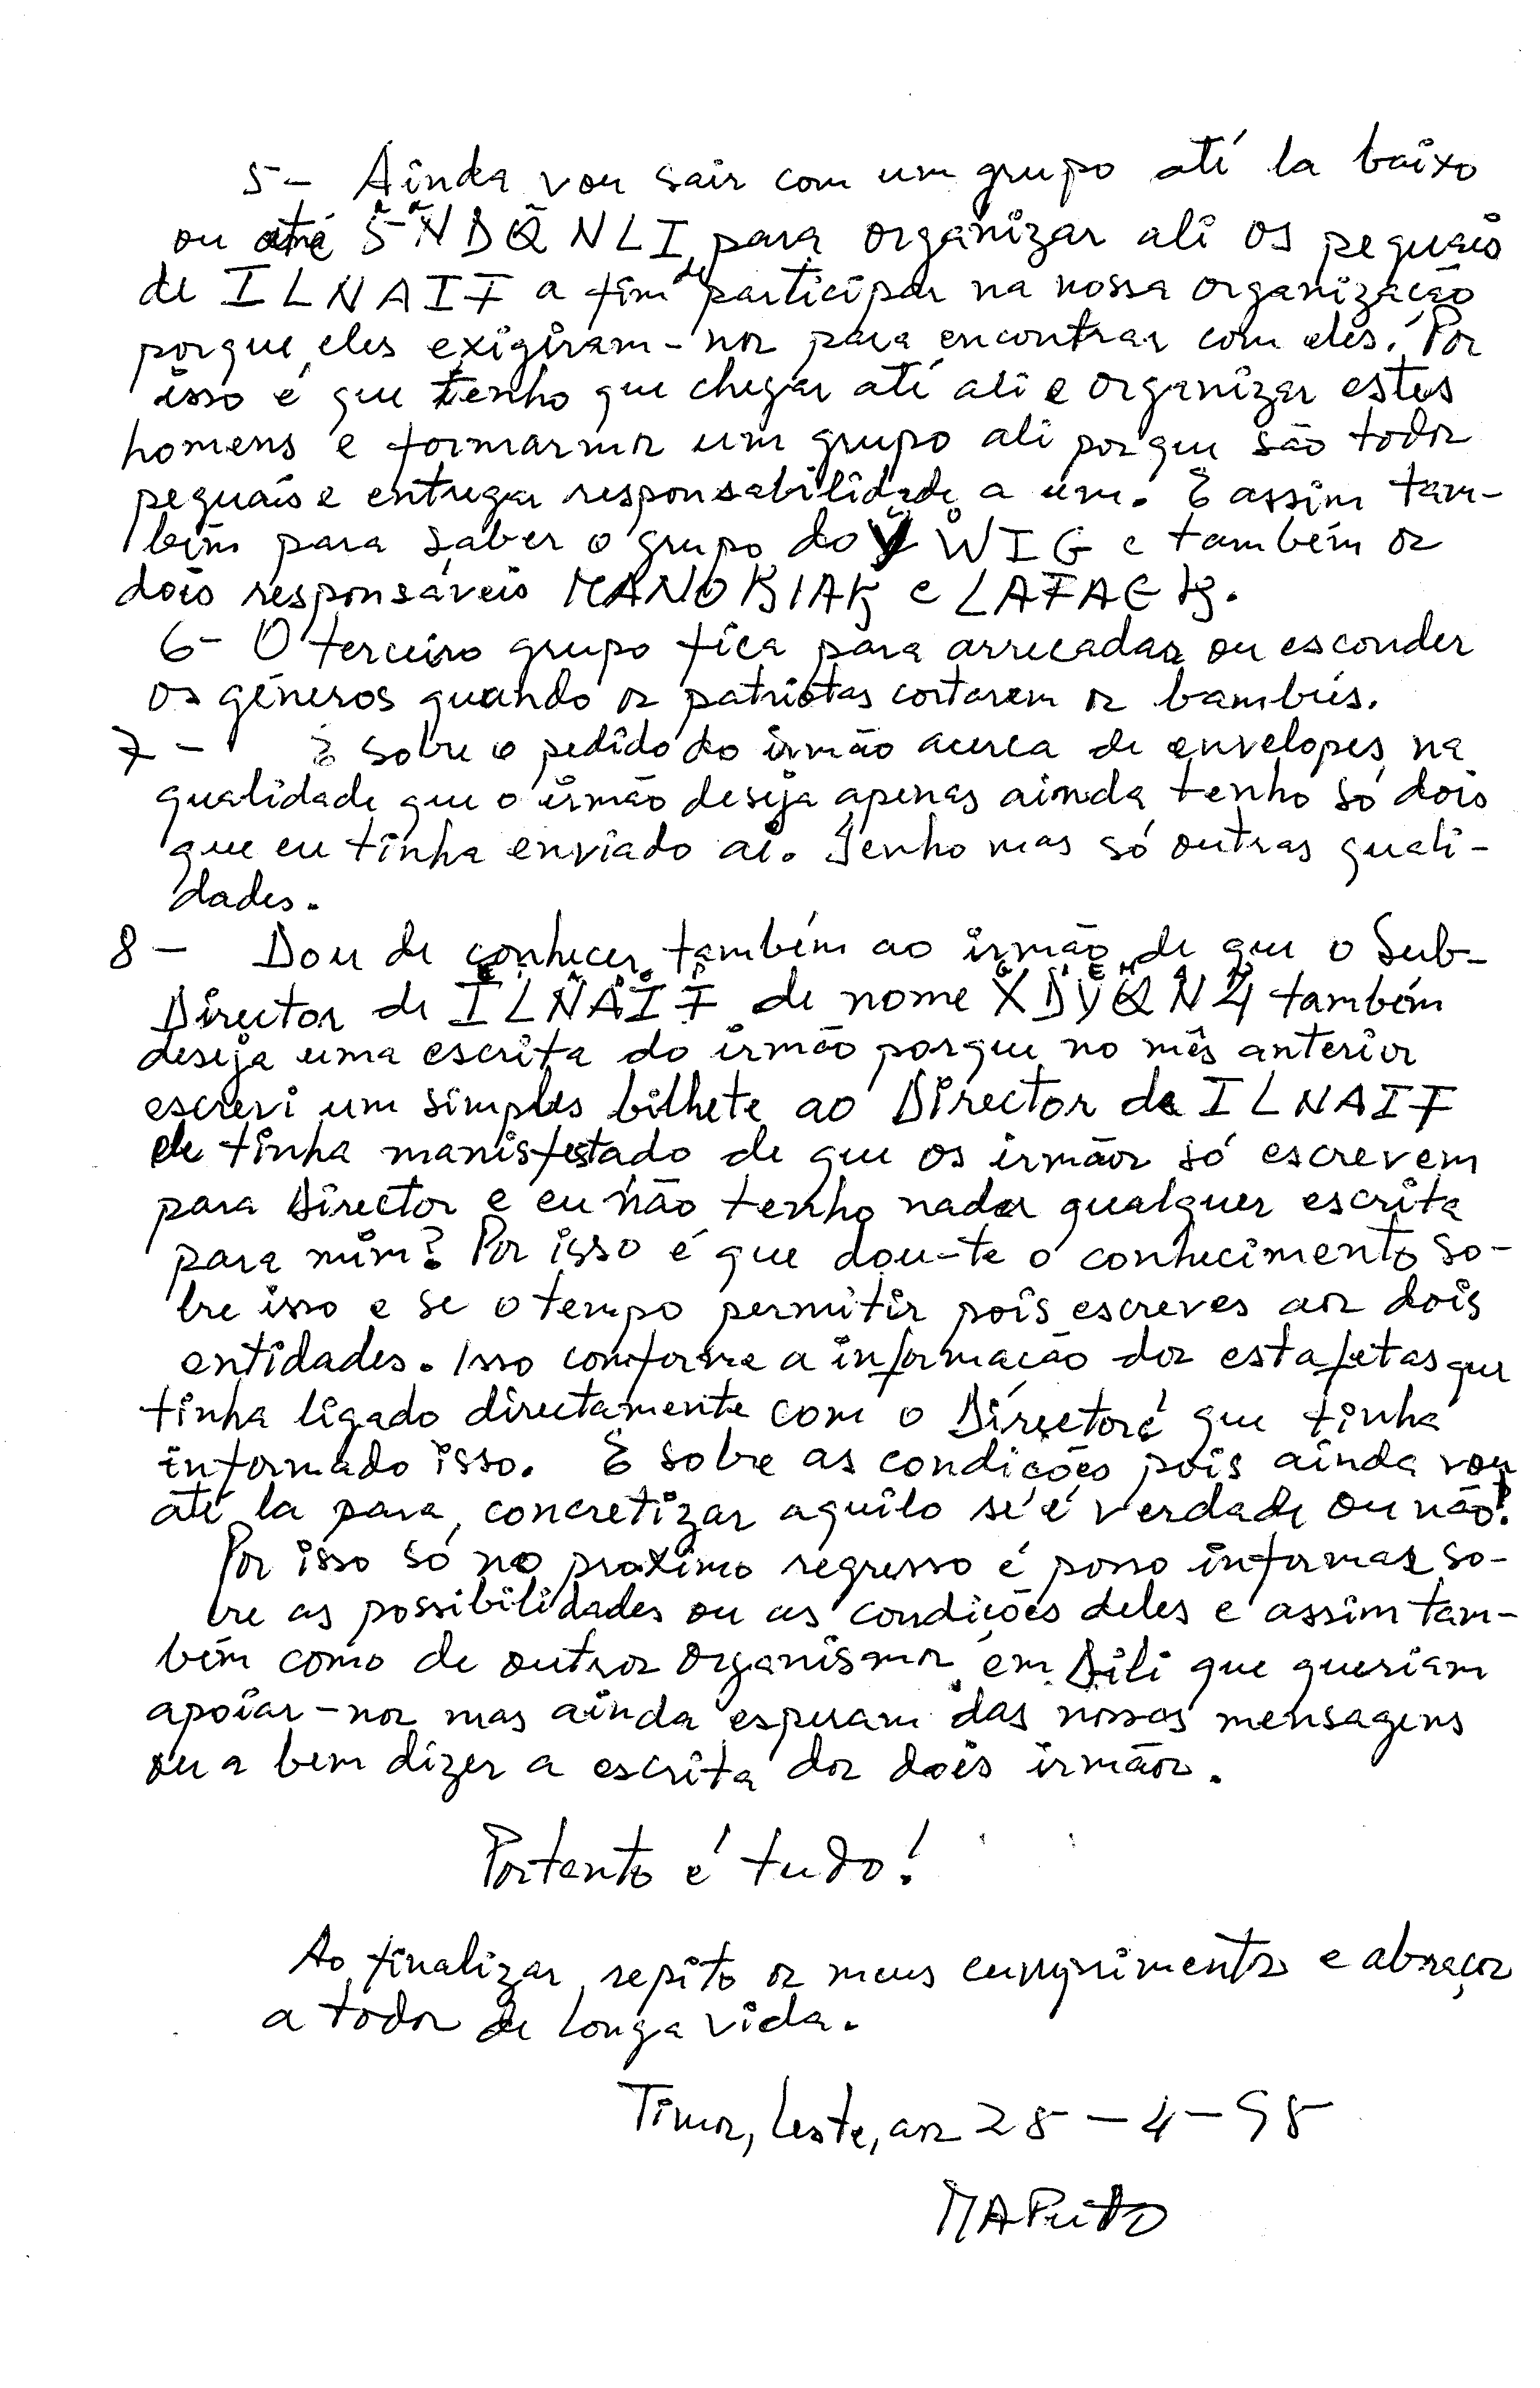 5- Ainda vou sair com um grupo até la baixo
ou até 5NDQNLI, para organizar ali os pequais
de ILNAIF a fim de participar na nossa organização
porque eles exigiram-nos para encontrar com eles. Por
isso é que tenho que chegar até ali e organizar estes
homens e formarmos um grupo ali porque são todos
pequais e entregar responsabilidade a um. E assim tam-
bém para saber o grupo do WIG e também os
dois responsáveis MANO KIAK e LAFAEK.
6- O terceiro grupo fica para arrecadar ou esconder
os géneros quando os patriotas cortarem os bambús.
7- E sobre o pedido do irmão acerca de envelopes, na
qualidade que o irmão deseja apenas ainda tenho só dois
que eu tinha enviado ai. Tenho mas só outras quali-
dades.
8- Dou de conhecer também ao irmão de que o Sub-
Director de ILNAIF de nome XDYQN4 também
deseja uma escrita do irmão porque no mês anterior
escrevi um simples bilhete ao Director de ILNAIF
ele tinha manisfestado de que os irmãos só escrevem
para Director e eu não tenho nada qualquer escrita
para mim? Por isso é que dou-te o conhecimento so-
bre isso e se o tempo permitir pois escreves aos dois
entidades. Isso conforme a informação dos estafetas que
tinha ligado directamente com o Director é que tinha
informado isso. E sobre as condições pois ainda vou
até la para concretizar aquilo se é verdade ou não?
Por isso só no proximo regresso é posso informar so-
bre as possibilidades ou as condições deles e assim tam-
bém como de outros organismos em Dili que queriam
apoiar-nos mas ainda esperam das nossas mensagens
ou a bem dizer a escrita dos dois irmãos.
Portanto é tudo!
Ao finalizar, repito os meus cumprimentos e abraços
a todos de longa vida.
Timor, Leste, aos 28-4-98
MAPuto